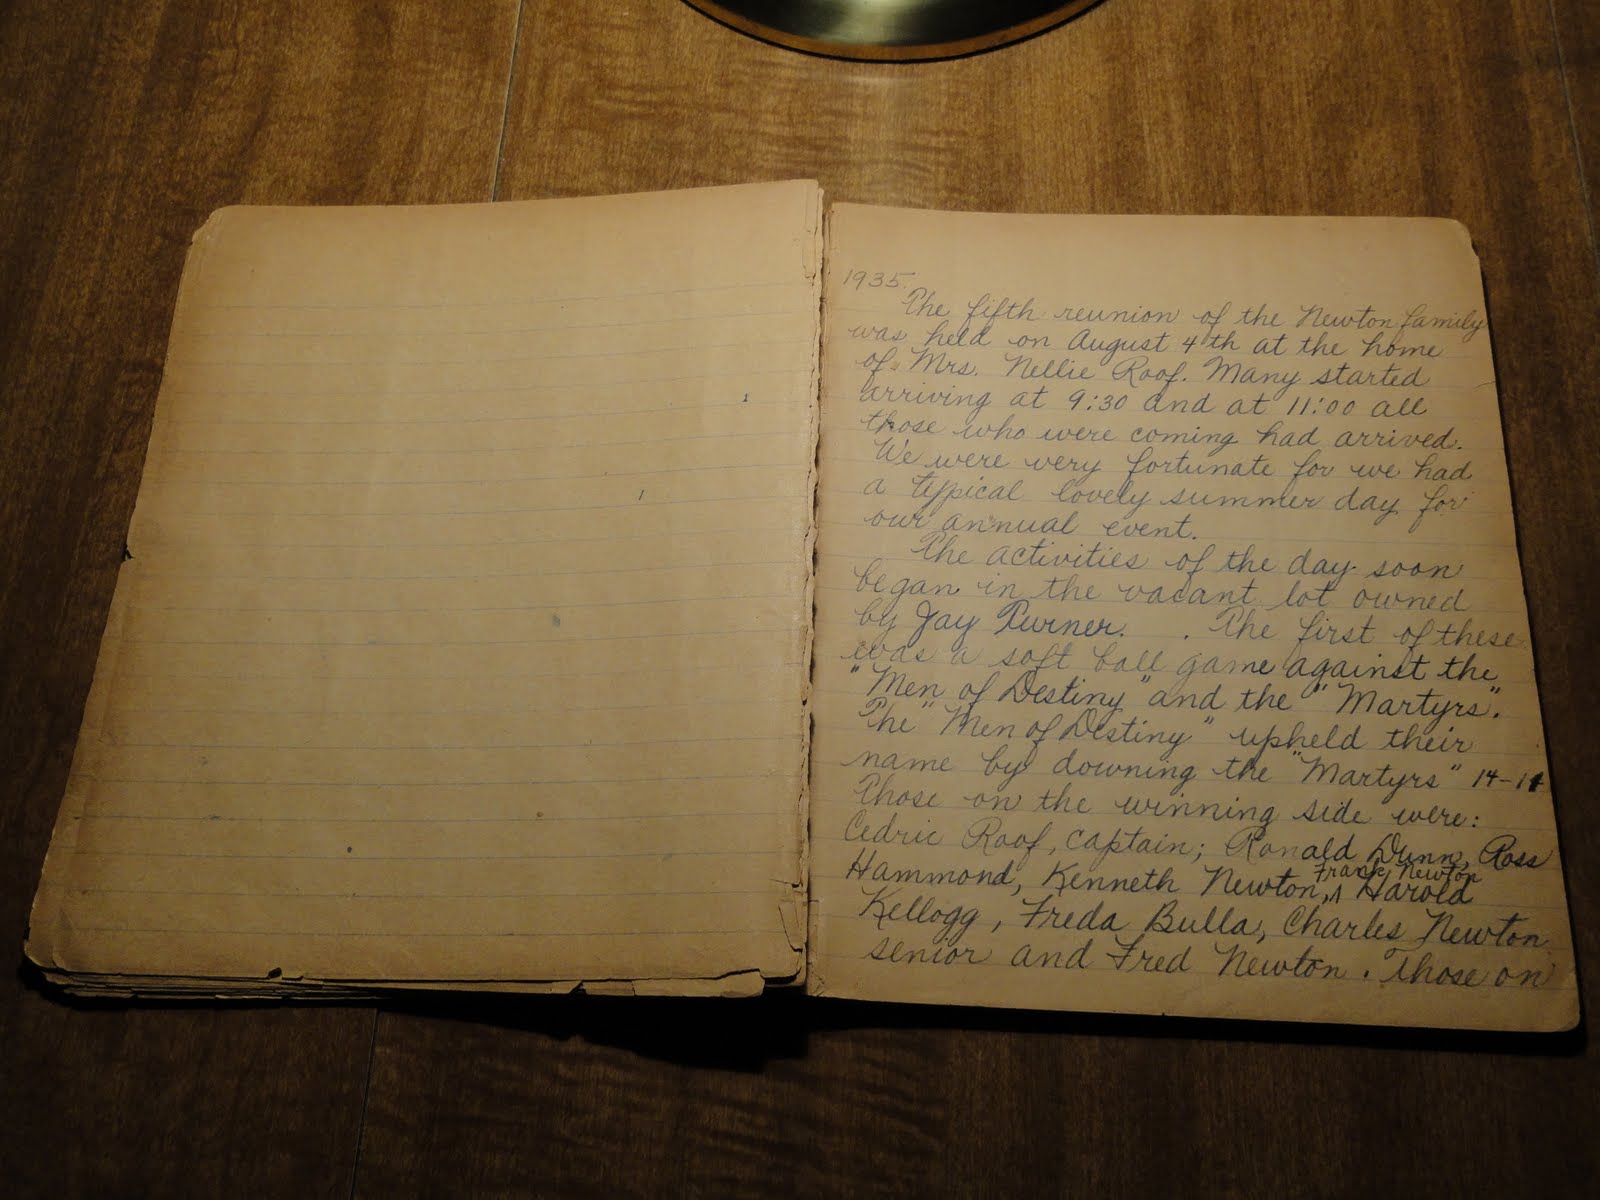 1935.
The fifth reunion of the Newton family
was held on August 4th at the home
of Mrs. Nellie Roof. Many started
arriving at 9:30 and at 11:00 all
those who were coming had arrived.
We were very fortunate for we had
a typical lovely summer day for
our annual event.
The activities of the day soon
began in the vacant lot owned
by Jay Turner. . The first of these
was a soft ball game against the
"Men of Destiny" and the "Martyrs".
The "Men of Destiny" upheld their
name by downing the "Martyrs" 14-11
Those on the winning side were:
Cedric Roof, captain; Ronald Dunn, Ross
Frank Newton
Hammond, Kenneth Newton, ^ Harold
Kellogg, Freda Bulla, Charles Newton
senior and Fred Newton. Those on